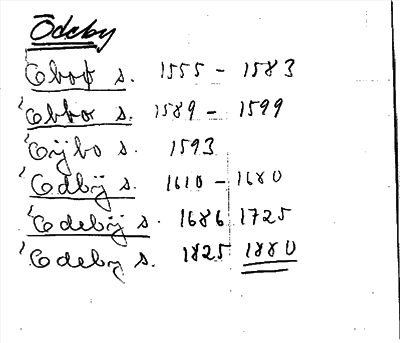 Ödeby
Eboø s. 1555 - 1583
'Ebbor s. 1589 - 1599
'Eÿbo s. 1593
'Edbÿ s. 1610 - 1680
'Edebÿ s. 1686 1725
'Edeby s. 1825 1880